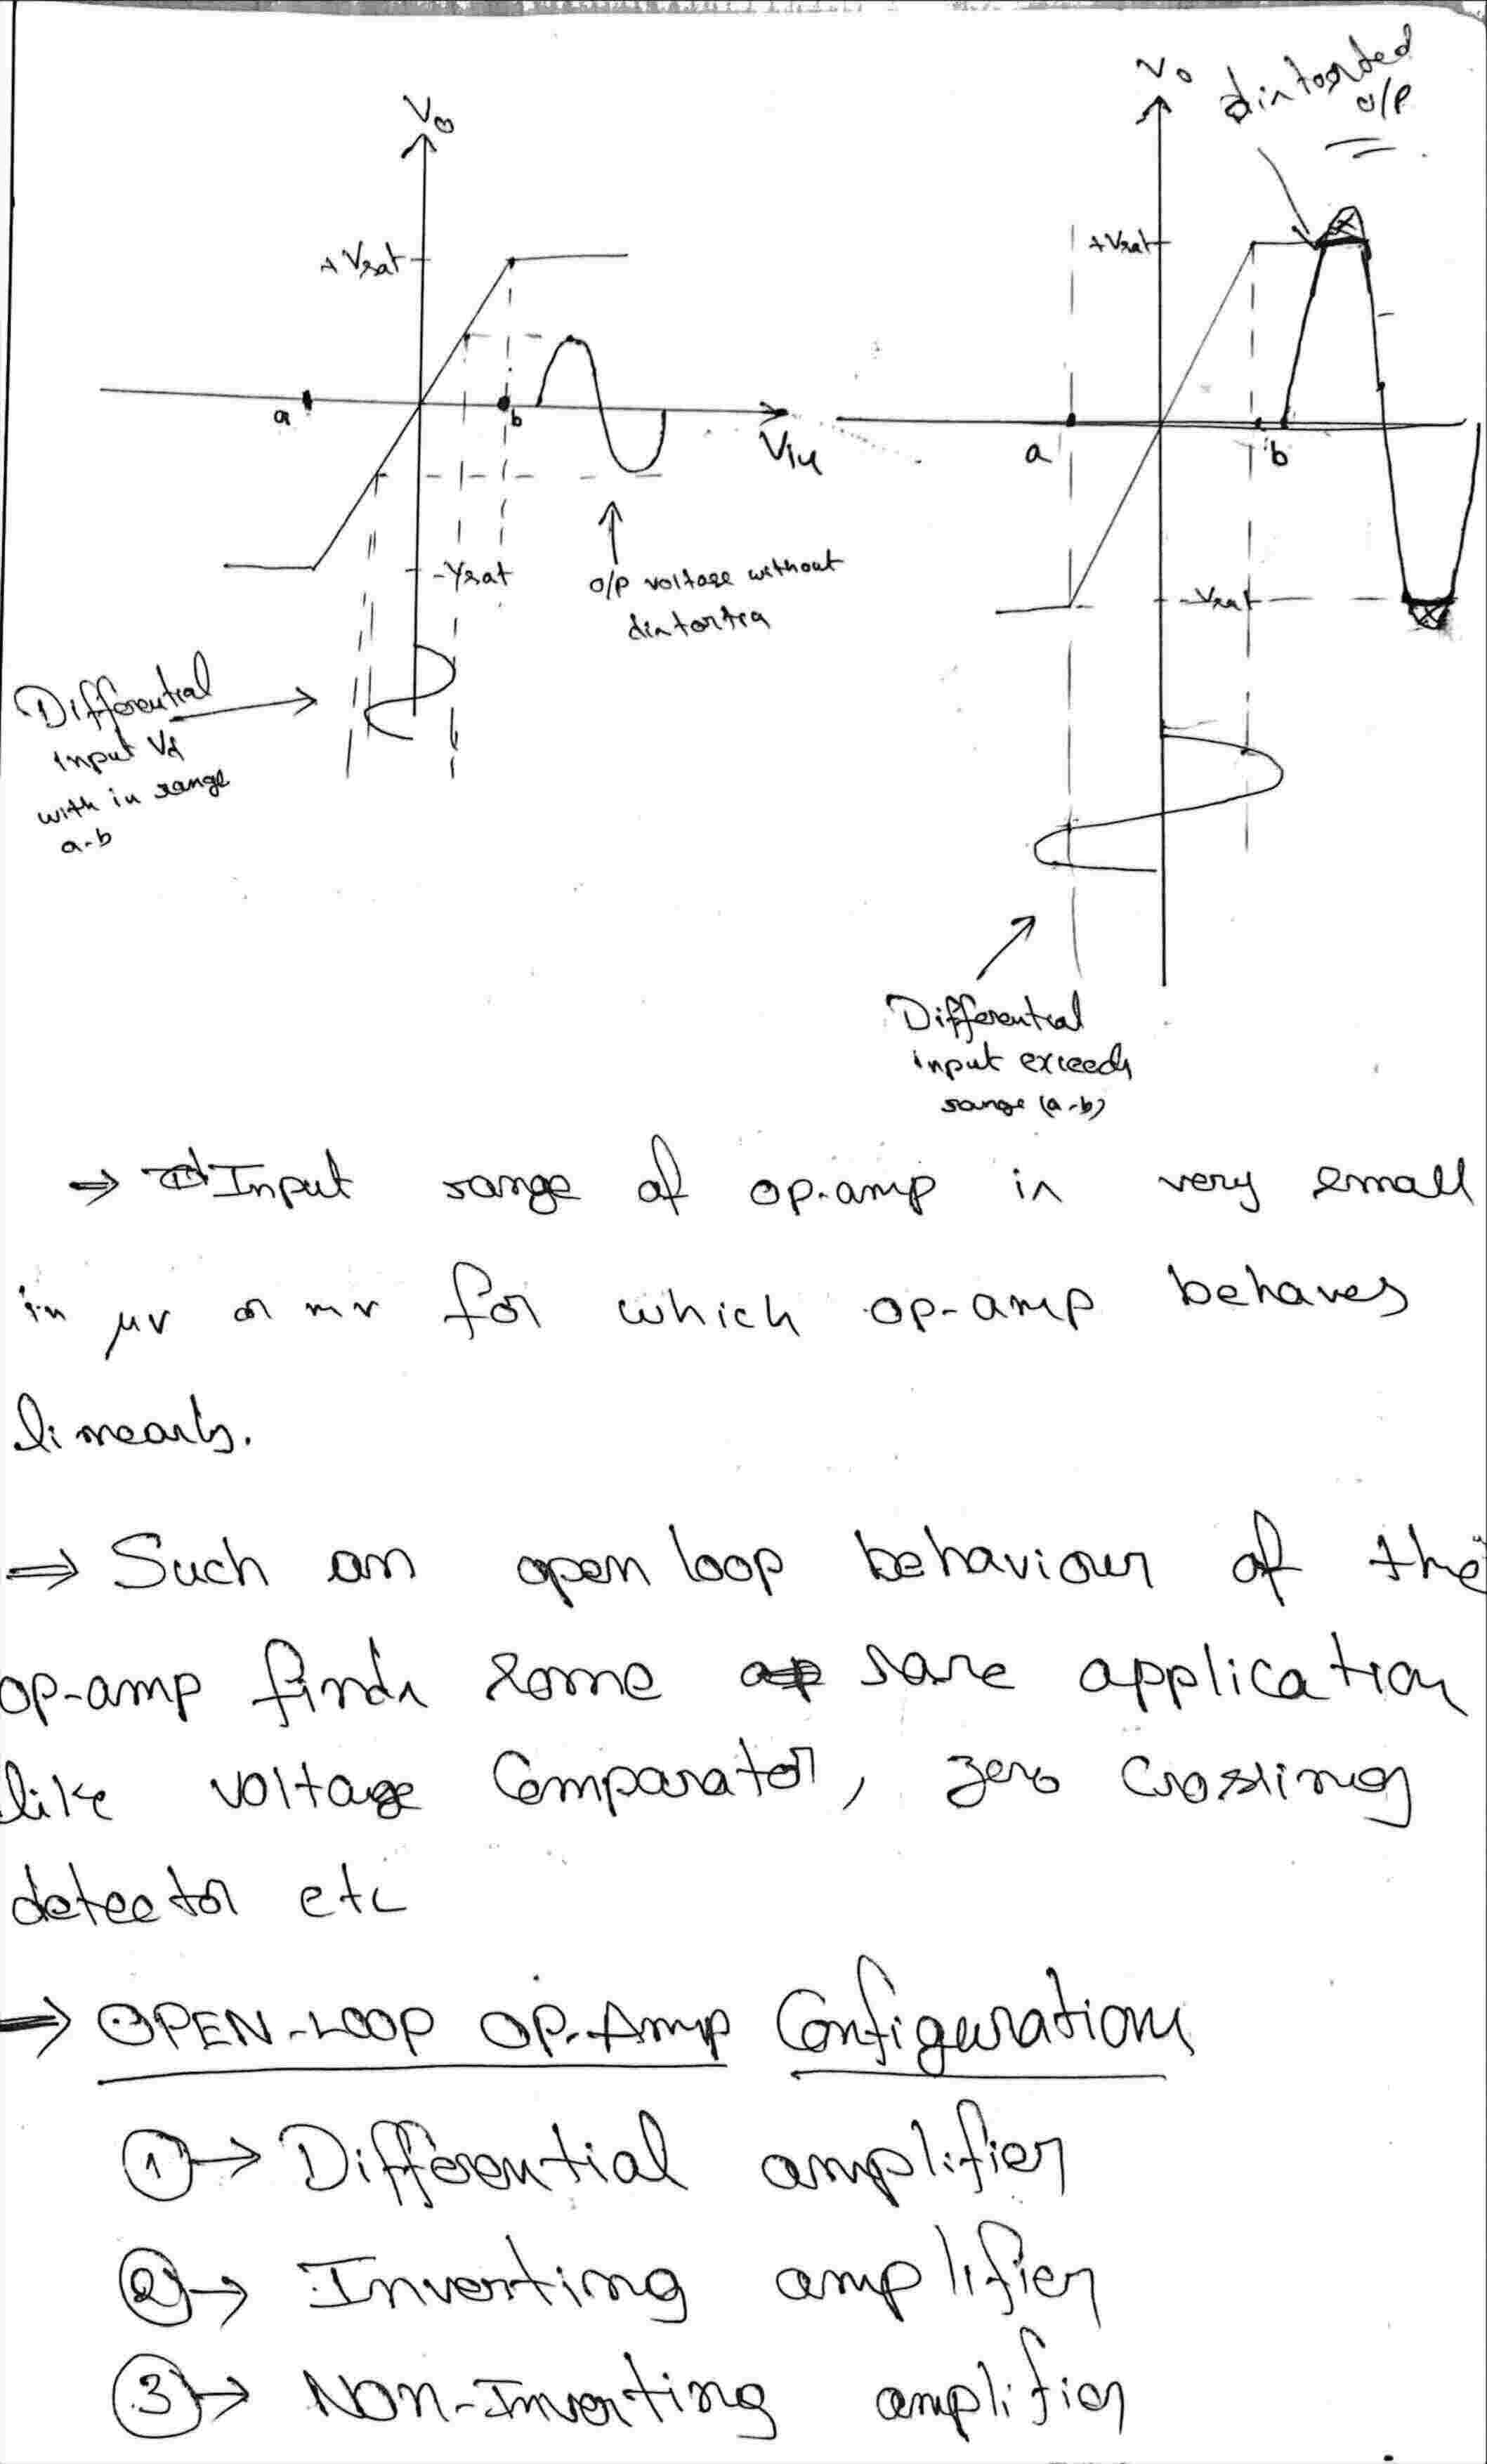 Vo
+Vsat
a
b
Vin
-Vsat
o/p voltage without
distortion
Differential
input Vd
with in range
a-b
Vo
distorted
o/p
+Vsat
a
b
-Vsat
Differential
input exceeds
range (a-b)
⇒ Input range of op.amp is very small
in μv or mv for which op-amp behaves
linearly.
⇒ Such an open loop behaviour of the
op-amp finds some rare application
like voltage Comparator, zero Crossing
detector etc
⇒ OPEN-LOOP OP.Amp Configurations
① → Differential amplifier
② → Inverting amplifier
③ → Non-Inverting amplifier